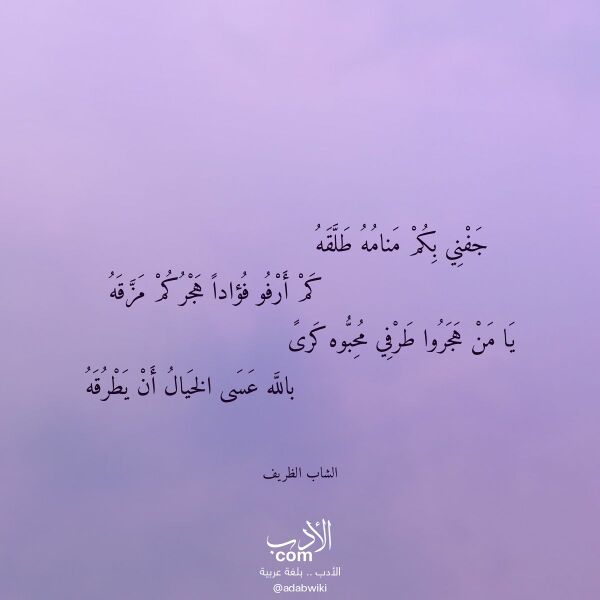 جَفْنِي بِكُمْ مَنامُهُ طَلَّقَهُ
كَمْ أَرْفُو فُؤاداً هَجْرُكُمْ مَزَّقَهُ
يَا مَنْ هَجَرُوا طَرْفِي مُحِبُّوه كَرىً
باللَّه عَسَى الخَيالُ أَنْ يَطْرُقَهُ
الشاب الظريف
الأدب
.com
الأدب .. بلغة عربية
@adabwiki